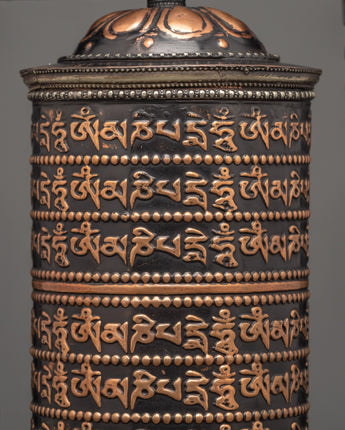 དྨེ ཧཱུྃ ཨོཾ མ ཎི པ དྨེ ཧཱུྃ ཨོཾ མ ཎི
དྨེ ཧཱུྃ ཨོཾ མ ཎི པ དྨེ ཧཱུྃ ཨོཾ མ ཎི
དྨེ ཧཱུྃ ཨོཾ མ ཎི པ དྨེ ཧཱུྃ ཨོཾ མ ཎི
དྨེ ཧཱུྃ ཨོཾ མ ཎི པ དྨེ ཧཱུྃ ཨོཾ མ ཎི
དྨེ ཧཱུྃ ཨོཾ མ ཎི པ དྨེ ཧཱུྃ ཨོཾ མ ཎི